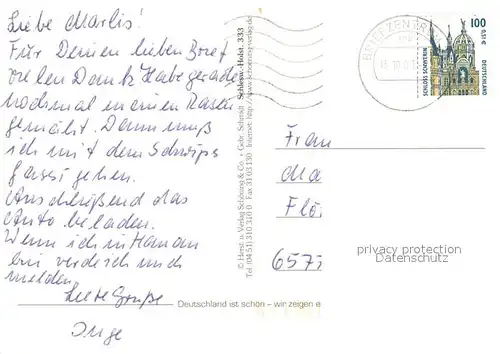 Liebe Marlis!
Für Deinen lieben Brief
vielen Dank. Habe gerade
nochmal meinen Rasen
gemäht. Dann muß
ich mit dem Schwips
Gassi gehen.
Anschließend das
Auto beladen.
Wenn ich in Hanau
bin werde ich mich
melden.
Liebe Grüße
Inge
© Herst. u. Verlag Schöning & Co. + Gebr. Schmidt Schlesw.-Holst. 333
Tel. (04 51) 310 310 Fax 31 03 130 Internet: http://www.schoening-verlag.de
Deutschland ist schön – wir zeigen e
BRIEFZENTRUM
100
0,51 €
SCHLOSS SCHWERIN
DEUTSCHLAND
Frau
Ma
Flö
657
privacy protection
Datenschutz